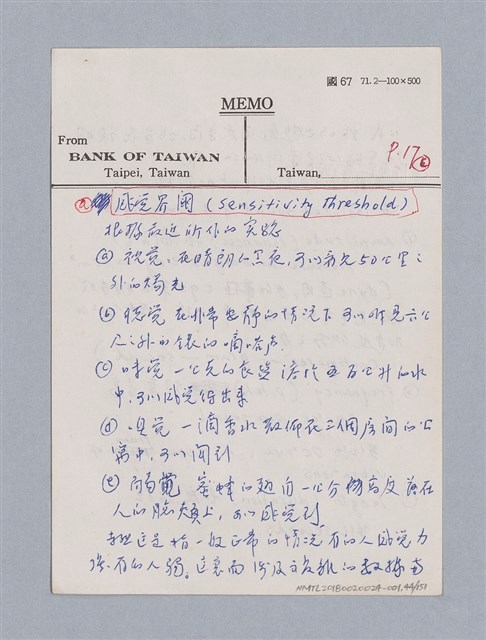 國 67 71.2—100×500
MEMO
From
BANK OF TAIWAN
Taipei, Taiwan
Taiwan,
P.17
ⓐ 感觉界阈 (sensitivity threshold)
根據最近所作的实驗
ⓐ 視觉、在晴朗的黑夜，可以看見50公里之
外的燭光
ⓑ 聽觉 在非常安静的情况下可以听見六公
尺之外的錶的嘀嗒声
ⓒ 味觉 一公克的食塩溶於五百公升的水
中，可以感觉得出来
ⓓ 嗅觉 一滴香水散佈在三個房間的公
寓中，可以闻到
ⓔ 觸覺 蜜蜂的翅自一公分高度落在
人的臉頰上，可以感觉到
这是指一般正常的情况有的人感觉力
強有的人弱。这裏面涉及
NMTL20180020024-001.44/151